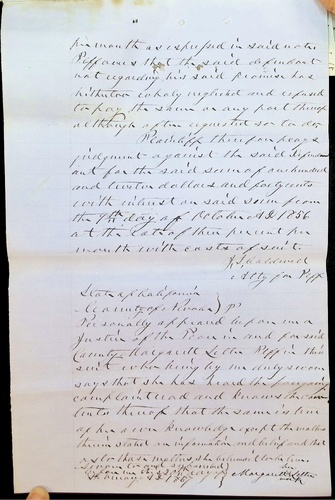 per month as expressed in said note
Plff avers that the said defendant
not regarding his said promise has
hitherto wholy neglected and refused
to pay the same or any part thereof
although often requested so to do
Plaintiff therefore prays
judgment against the said defend
ant for the said sum of one hundred
and twelve dollars and forty cents
with interest on said sum from
the 9th day of October AD 1856
at the rate of three per cent per
month with costs of suit
Atty for Plff
State of California
County of
Personally appeared before me a
Justice of the Peace in and for said
County Margarett Plff in this
suit who being by me duly sworn
says that she has heard the foregoing
complaint read and knows the con
tents thereof that the same is true
of her own knowledge except the matters
therein stated on information and belief and that
as to those matters she believes it to be true
Sworn to and subscribed her
before me this day of Margarett
mark